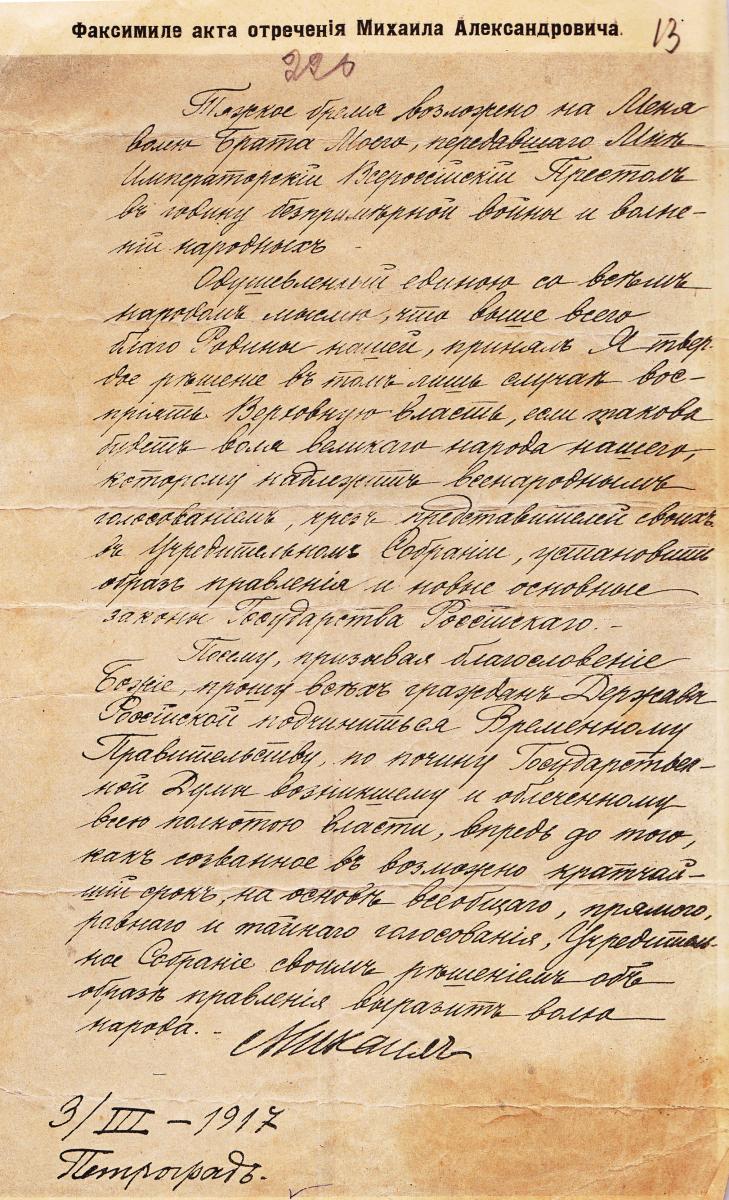 Факсимиле акта отреченія Михаила Александровича.
13
226
Тяжкое бремя возложено на Меня
волею Брата Моего, передавшаго Мнѣ
Императорскій Всероссійскій Престолъ
въ годину безпримѣрной войны и волне-
ній народныхъ.
Одушевленный единою со всѣмъ
народомъ мыслію, что выше всего
благо Родины нашей, принялъ Я твер-
дое рѣшеніе въ томъ лишь случаѣ вос-
пріять Верховную власть, если такова
будетъ воля великаго народа нашего,
которому надлежитъ всенароднымъ
голосованіемъ, чрезъ представителей своихъ
въ Учредительномъ Собраніи, установить
образъ правленія и новые основные
законы Государства Россійскаго. -
Посему, призывая благословеніе
Божіе, прошу всѣхъ гражданъ Державы
Россійской подчиниться Временному
Правительству, по почину Государствен-
ной Думы возникшему и облеченному
всею полнотою власти, впредь до того,
какъ созванное въ возможно кратчай-
шій срокъ, на основѣ всеобщаго, прямого,
равнаго и тайнаго голосованія, Учредитель-
ное Собраніе своимъ рѣшеніемъ объ
образѣ правленія выразитъ волю
народа. -
Михаилъ
3/III - 1917
Петроградъ.